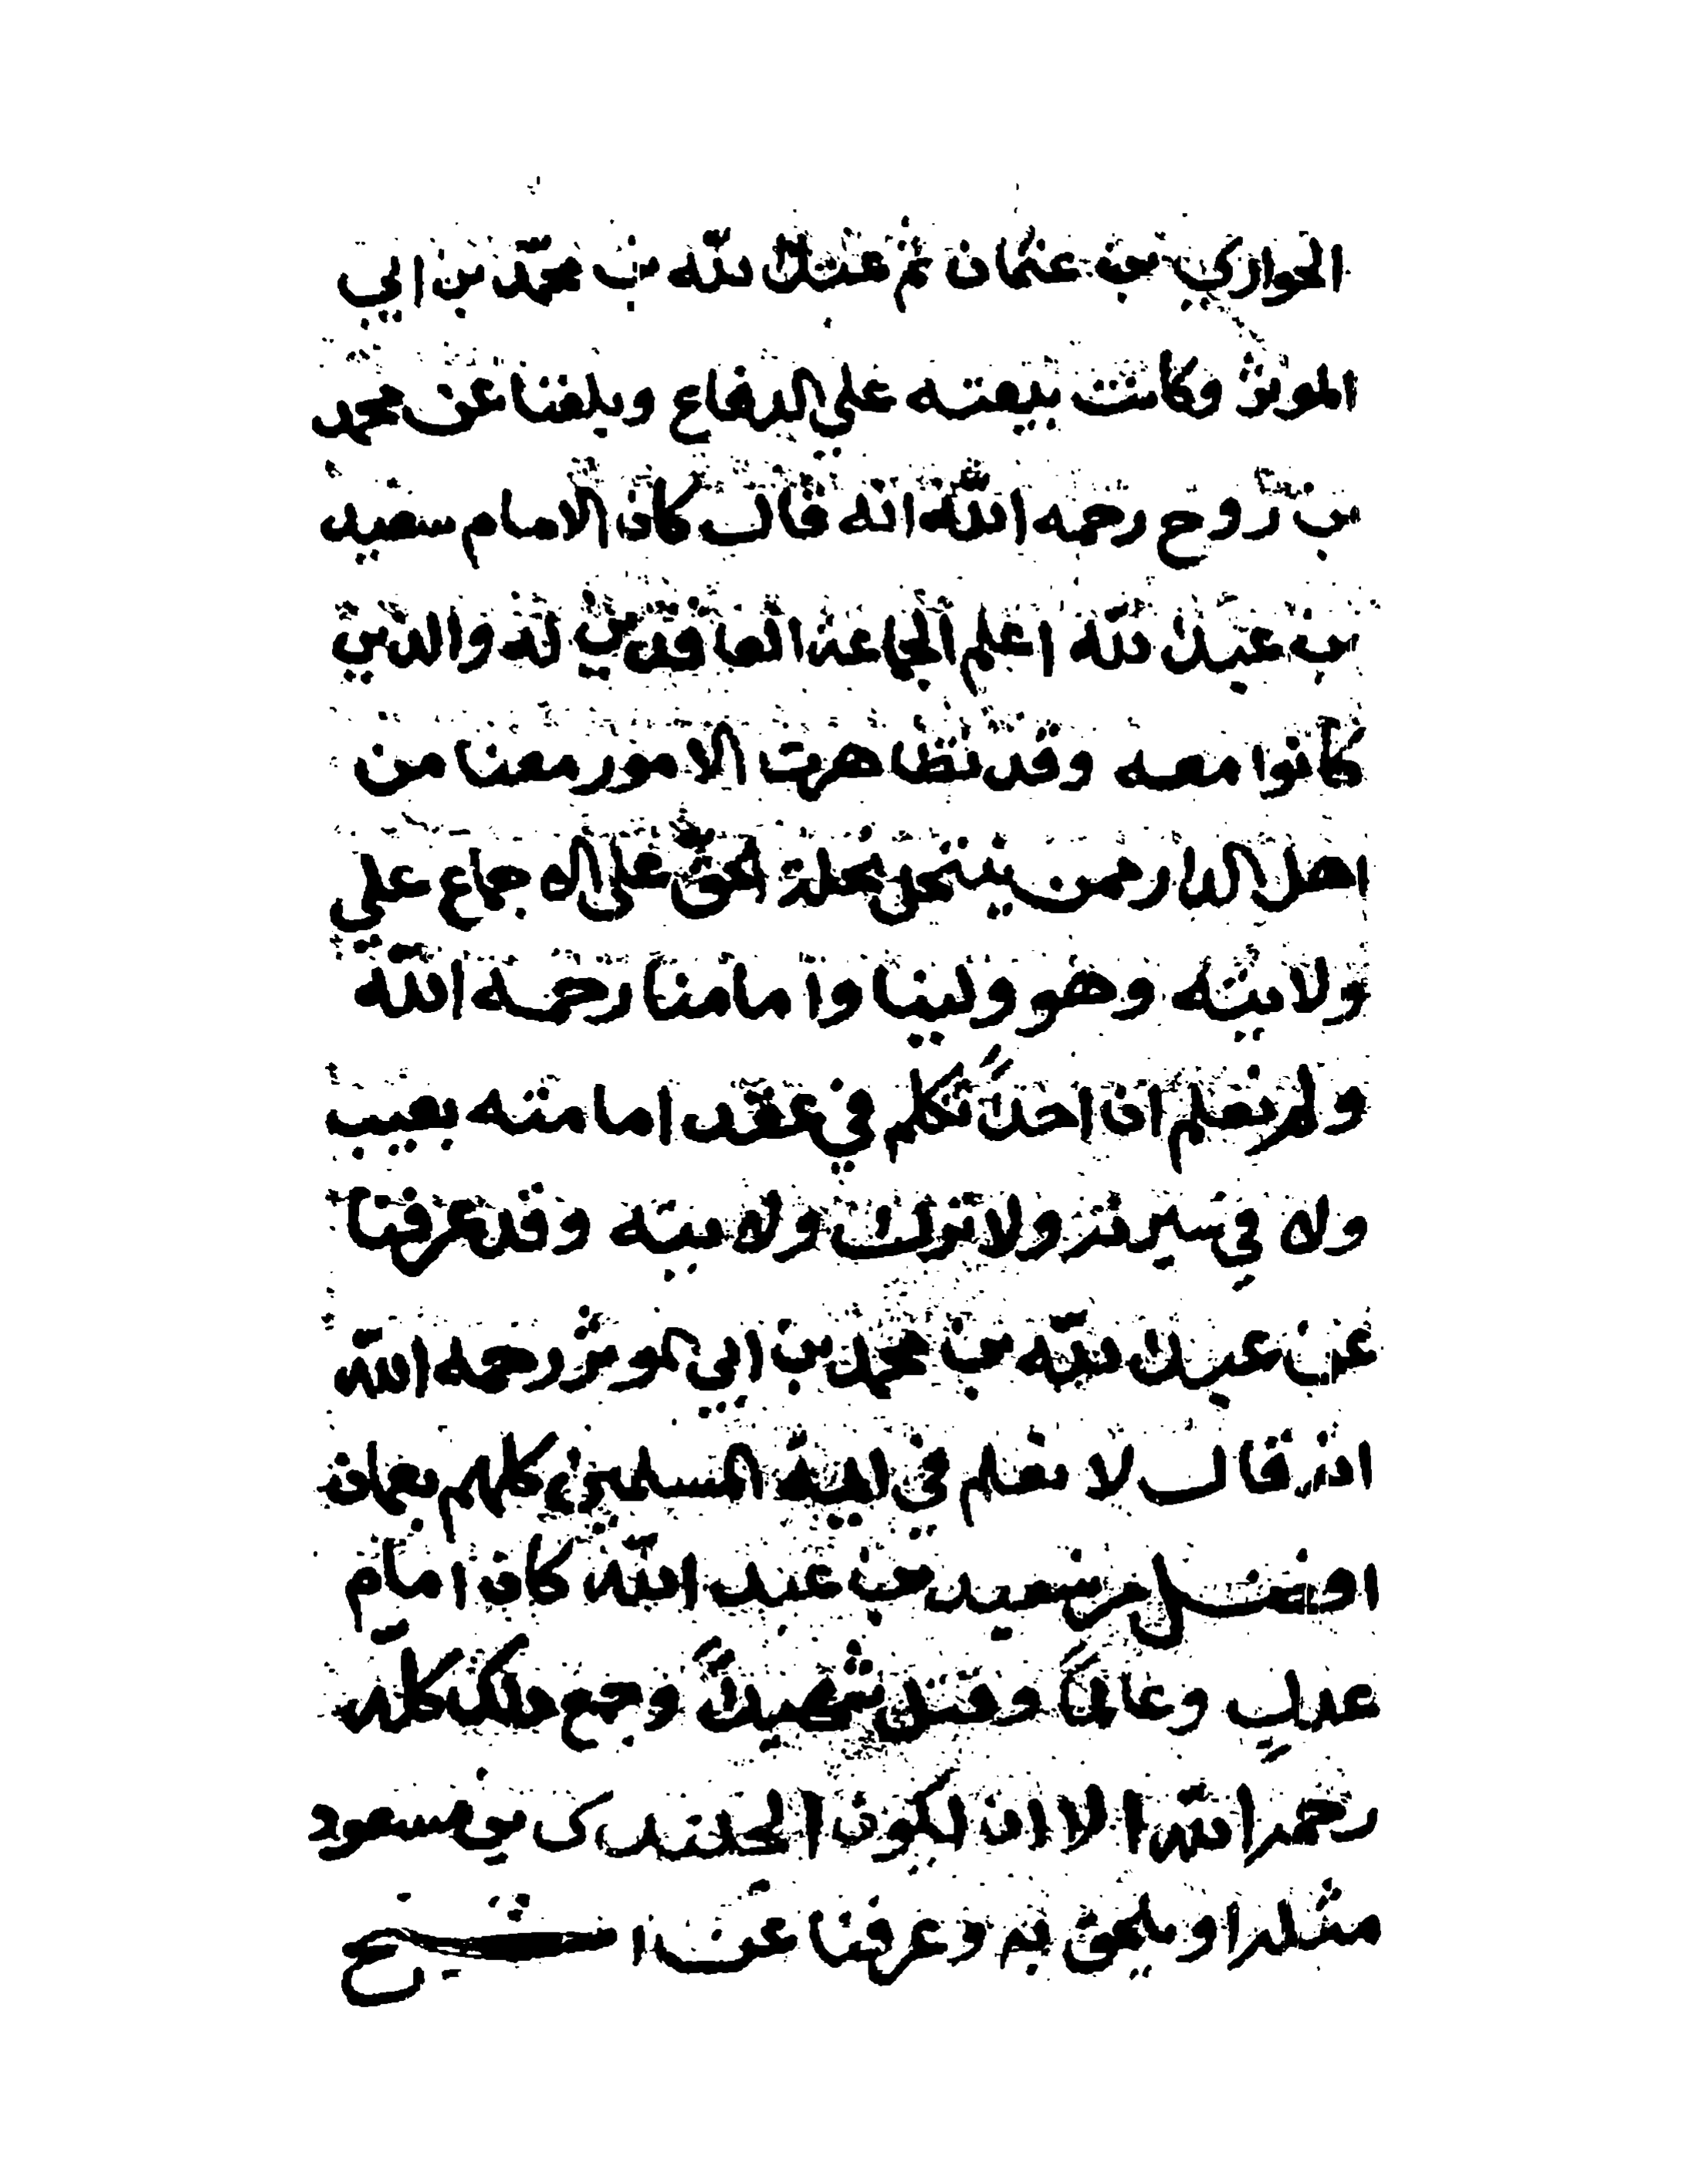 الحواري بن عثمان ثم عبدالله بن محمد بن ابي
الموثر وكانت بيعته علي الدفاع وبلغنا عن محمد
بن روح رحمه الله انه قال كان الامام سعيد
بن عبدالله اعلم الجماعة العاقدين له والذين
كانوا معه وقد تظاهرت الامور معنا من
اهل الدار ممن ينتحل نحلة الحق على الاجماع علي
ولايته وهو ولينا وامامنا رحمه الله
ولم نعلم ان احداً تكلم في عقد امامته بعيب
ولا في سيرته ولا ترك ولايته وقد عرفنا
عن عبدالله بن محمد بن ابي الموثر رحمه الله
انه قال لا نعلم في ايمة المسلمين كلهم بعمان
افضل من سعيد بن عبد الله كان امام
عدلٍ وعالماً وقتل شهيداً وجمع ذلك كله
رحمه الله الا ان يكون الجلندى بن مسعود
مثله او يلحق به وعرفنا عن الشيخ